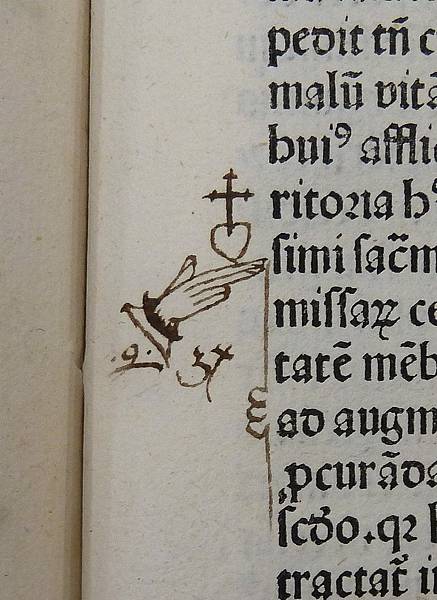 pedit tñ c
malū vitā
buiꝰ afflic
ritoꝛia hꝰ
ſimi ſac̄m
miſſaꝝ ce
tatē mēb
ad augm
ꝓcurāda
ſcd̄o.qꝛ
tractat̄ i
.9.